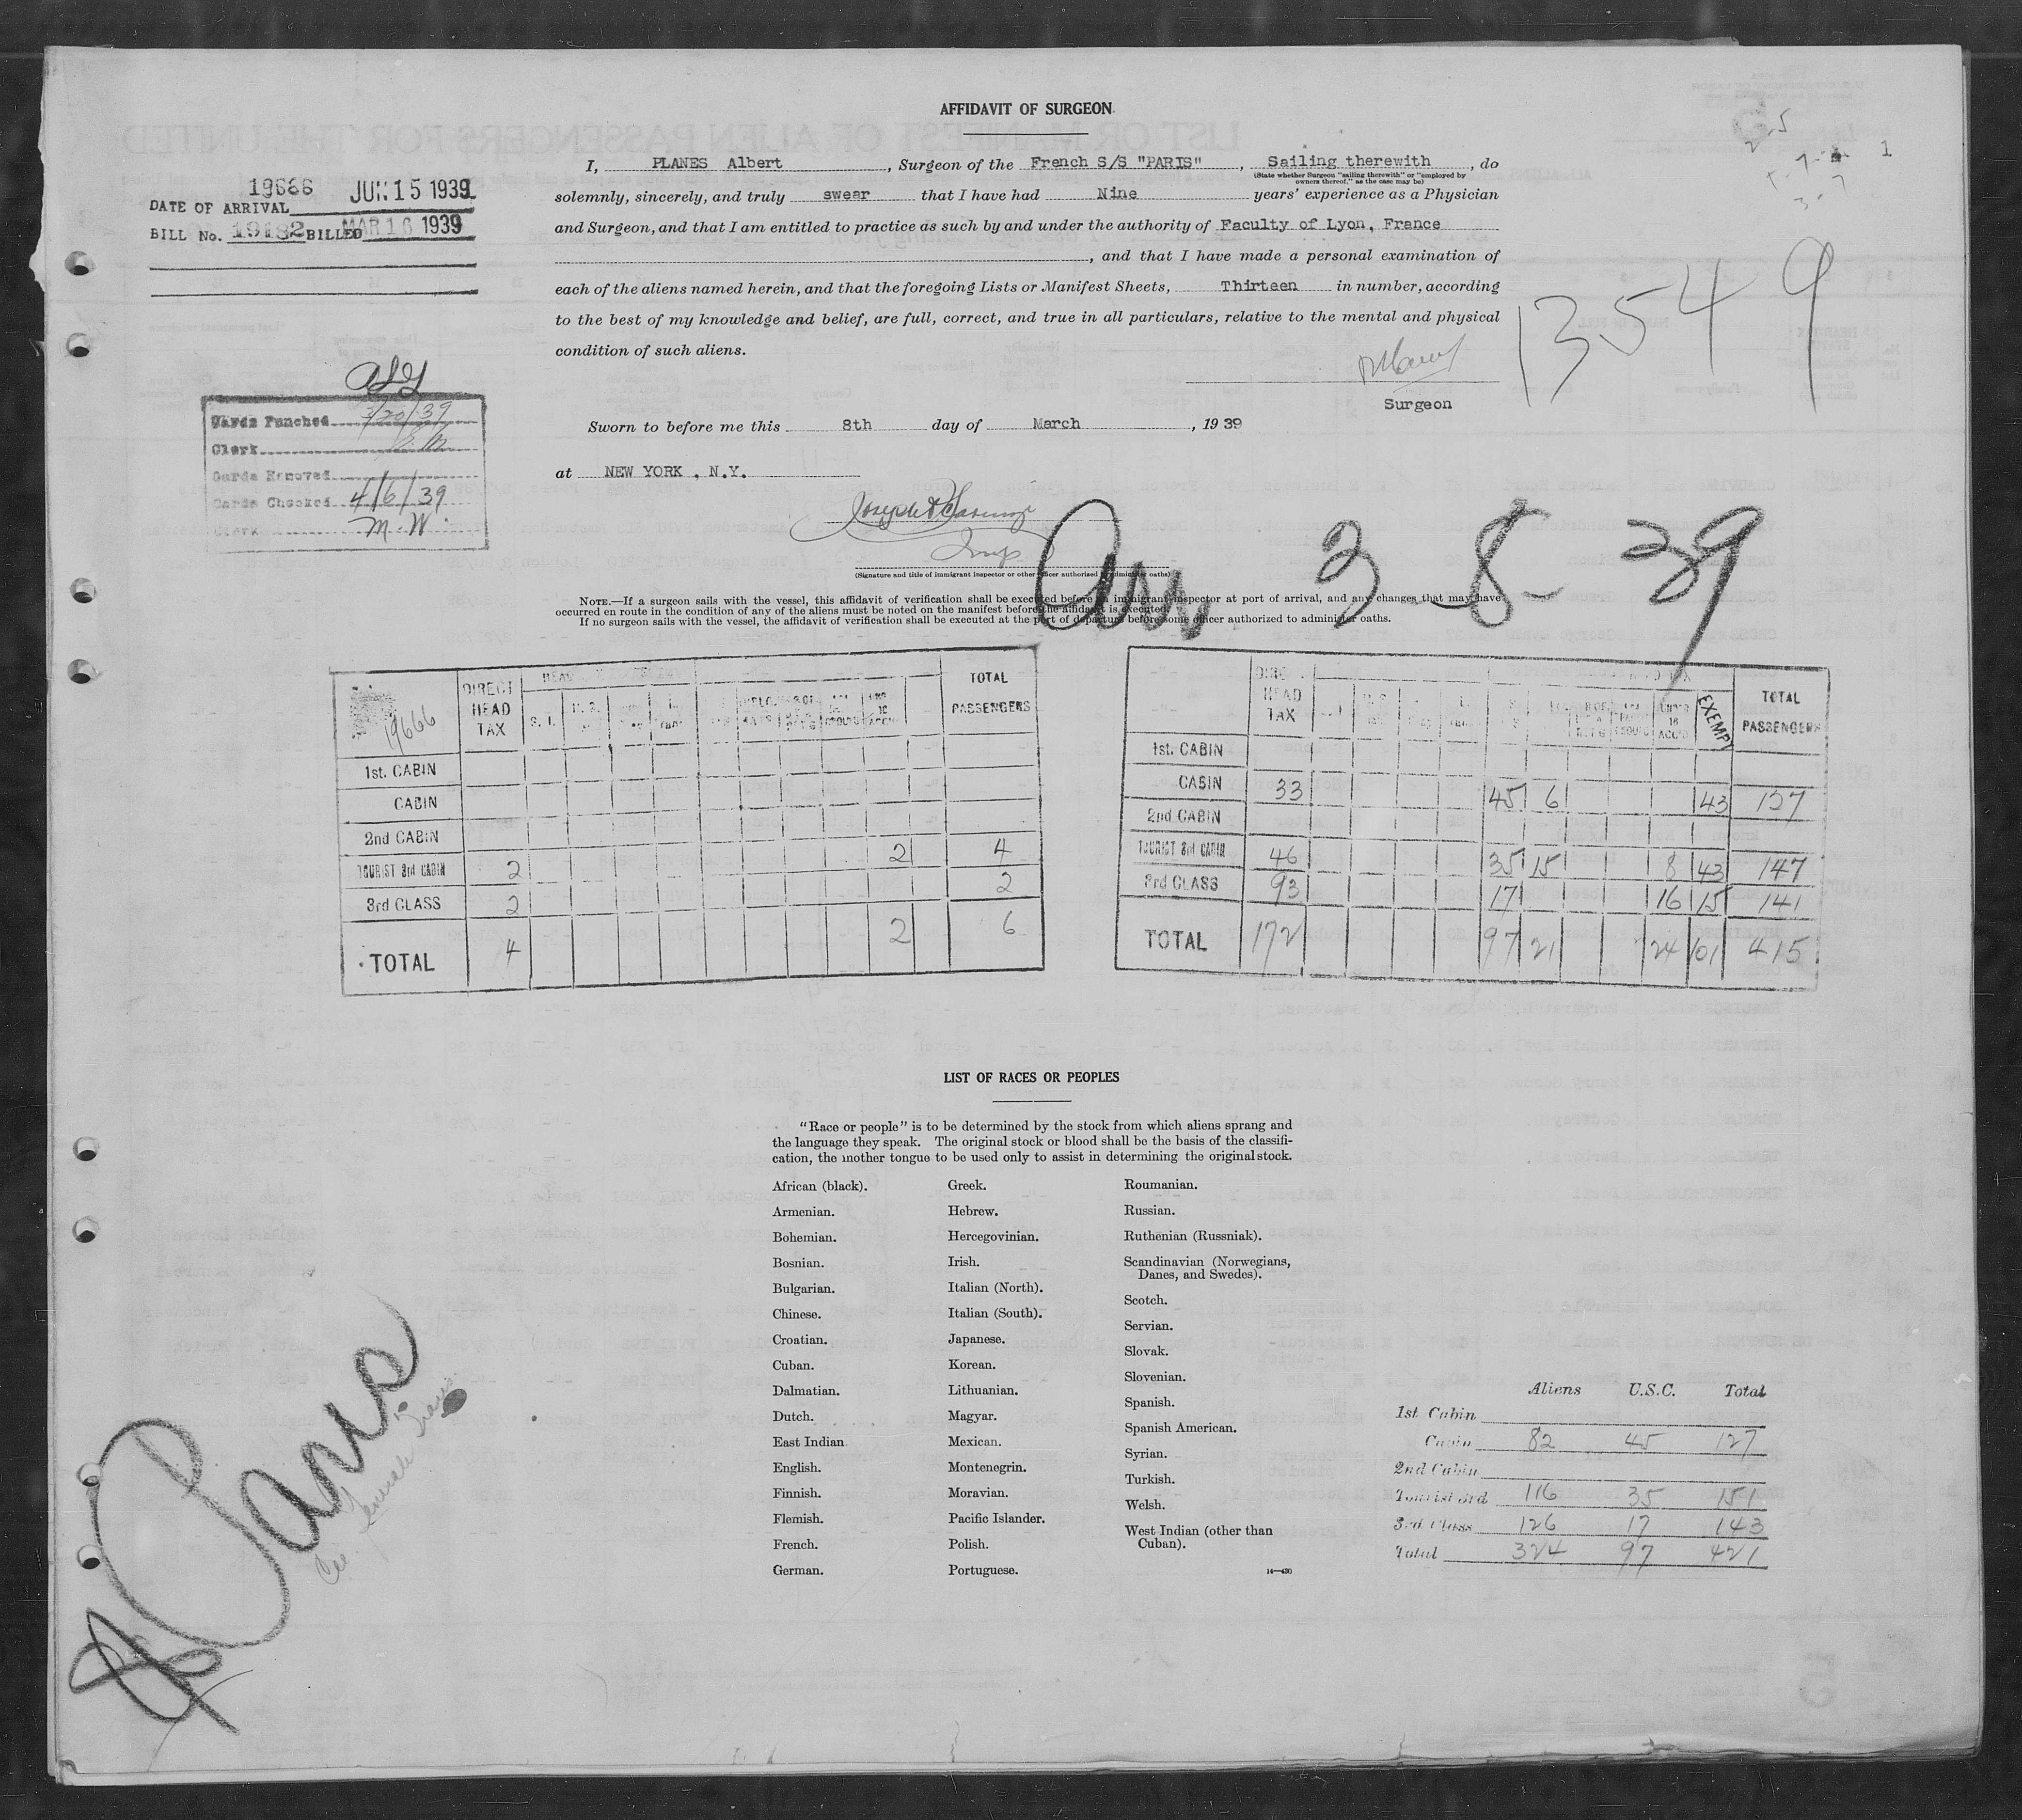 AFFIDAVIT OF SURGEON
I, PLANES Albert, Surgeon of the French S/S "PARIS", Sailing therewith, do
(State whether Surgeon "sailing therewith" or "employed by
owners thereof," as the case may be)
solemnly, sincerely, and truly swear that I have had Nine years' experience as a Physician
and Surgeon, and that I am entitled to practice as such by and under the authority of Faculty of Lyon, France
, and that I have made a personal examination of
each of the aliens named herein, and that the foregoing Lists or Manifest Sheets, Thirteen in number, according
to the best of my knowledge and belief, are full, correct, and true in all particulars, relative to the mental and physical
condition of such aliens.
Surgeon
Sworn to before me this 8th day of March, 1939
at NEW YORK , N.Y.
Insp
(Signature and title of immigrant inspector or other officer authorized to administer oaths)
1
13549
19666 JUN 15 1939
DATE OF ARRIVAL
BILL No. 19182 BILLED MAR 16 1939
Cards Punched 3/20/39
Clerk
Cards Removed
Cards Checked 4/6/39
Clerk M. W.
Arr 3-8-39
NOTE.—If a surgeon sails with the vessel, this affidavit of verification shall be executed before an immigrant inspector at port of arrival, and any changes that may have
occurred en route in the condition of any of the aliens must be noted on the manifest before the affidavit is executed.
If no surgeon sails with the vessel, the affidavit of verification shall be executed at the port of departure before some officer authorized to administer oaths.
19666 DIRECT HEAD TAX TOTAL PASSENGERS
1st. CABIN
CABIN
2nd CABIN
TOURIST 3rd CABIN 2 2 4
3rd CLASS 2 2
TOTAL 4 2 6
HEAD TAX UNDER 16 ACC'D EXEMPT TOTAL PASSENGERS
1st. CABIN
CABIN 33 45 6 43 127
2nd CABIN
TOURIST 3rd CABIN 46 35 15 8 43 147
3rd CLASS 93 17 16 15 141
TOTAL 172 97 21 24 101 415
LIST OF RACES OR PEOPLES
"Race or people" is to be determined by the stock from which aliens sprang and
the language they speak. The original stock or blood shall be the basis of the classifi-
cation, the mother tongue to be used only to assist in determining the original stock.
African (black).
Armenian.
Bohemian.
Bosnian.
Bulgarian.
Chinese.
Croatian.
Cuban.
Dalmatian.
Dutch.
East Indian.
English.
Finnish.
Flemish.
French.
German.
Greek.
Hebrew.
Hercegovinian.
Irish.
Italian (North).
Italian (South).
Japanese.
Korean.
Lithuanian.
Magyar.
Mexican.
Montenegrin.
Moravian.
Pacific Islander.
Polish.
Portuguese.
Roumanian.
Russian.
Ruthenian (Russniak).
Scandinavian (Norwegians,
Danes, and Swedes).
Scotch.
Servian.
Slovak.
Slovenian.
Spanish.
Spanish American.
Syrian.
Turkish.
Welsh.
West Indian (other than
Cuban).
14—430
Aliens U.S.C. Total
1st Cabin
Cabin 82 45 127
2nd Cabin
Tourist 3rd 116 35 151
3rd Class 126 17 143
Total 324 97 421
Paris